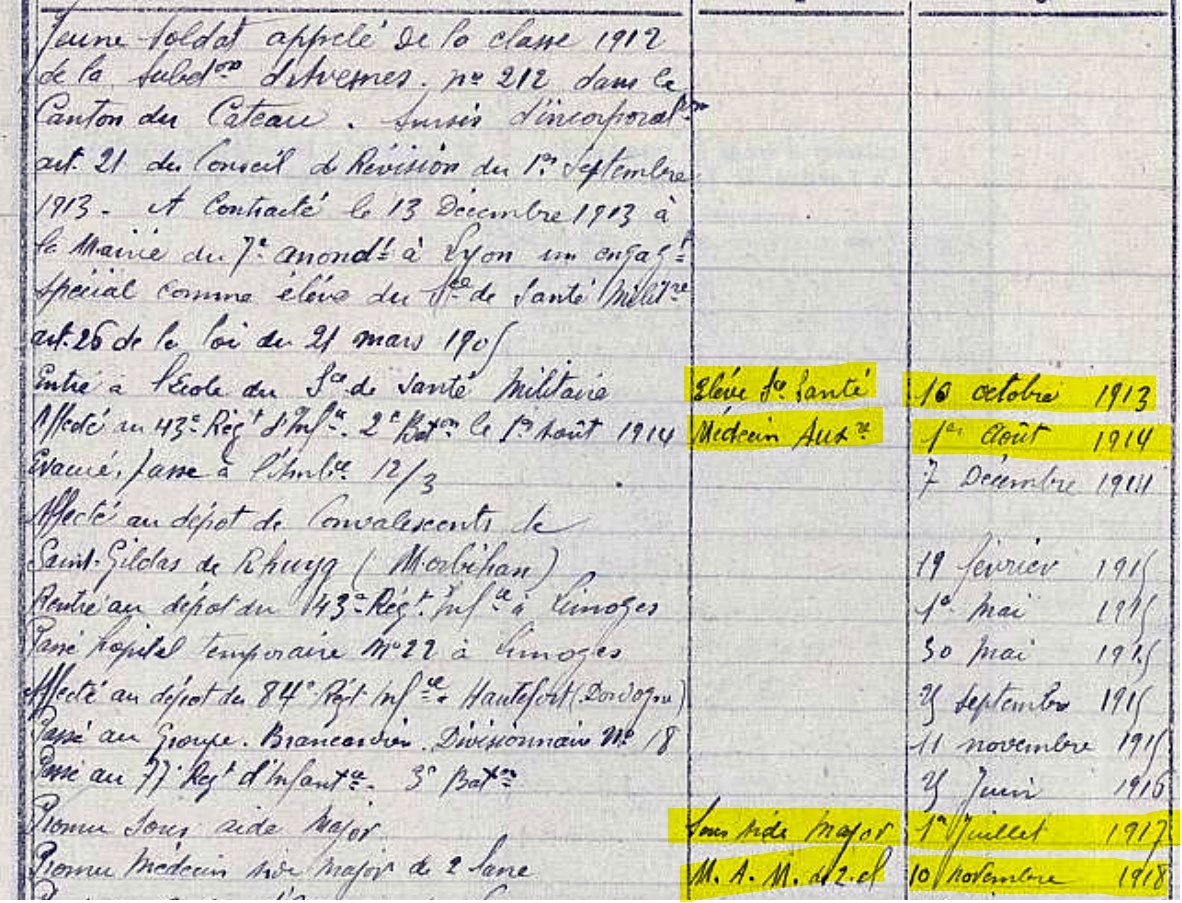 Jeune soldat appelé de la classe 1912
de la Subdon d'Avesnes. no 212 dans le
Canton du Cateau. Sursis d'incorporaton
art. 21 du Conseil de Révision du 1er Septembre
1913. A Contracté le 13 Décembre 1913 à
la Mairie du 7e arrondt à Lyon un engagt
spécial comme élève du Sce de Santé Militre
art. 25 de la loi du 21 mars 1905
Entré à l'Ecole du Sce de Santé Militaire Elève Sce Santé 10 octobre 1913
Affecté au 43e Régt d'Infie. 2e Baton le 1er Août 1914 Médecin Auxre 1er Août 1914
Evacué, passe à l'Ambce. 12/3 7 Décembre 1914
Affecté au dépôt de Convalescents de
Saint-Gildas de Rhuys (Morbihan) 19 février 1915
Rentré au dépôt du 43e Régt. Infie à Limoges 1er Mai 1915
Passé hôpital temporaire No 22 à Limoges 30 Mai 1915
Affecté au dépôt du 84e Régt Infie à Hautefort (Dordogne) 25 Septembre 1915
Passé au Groupe. Brancardier. Divisionnaire No 18 11 novembre 1915
Passé au 77e Regt d'Infantie. 3e Baton 25 Juin 1916
Promu Sous aide Major Sous aide Major 1er Juillet 1917
Promu Médecin aide Major de 2 Classe M. A. M. de 2. cl 10 Novembre 1918